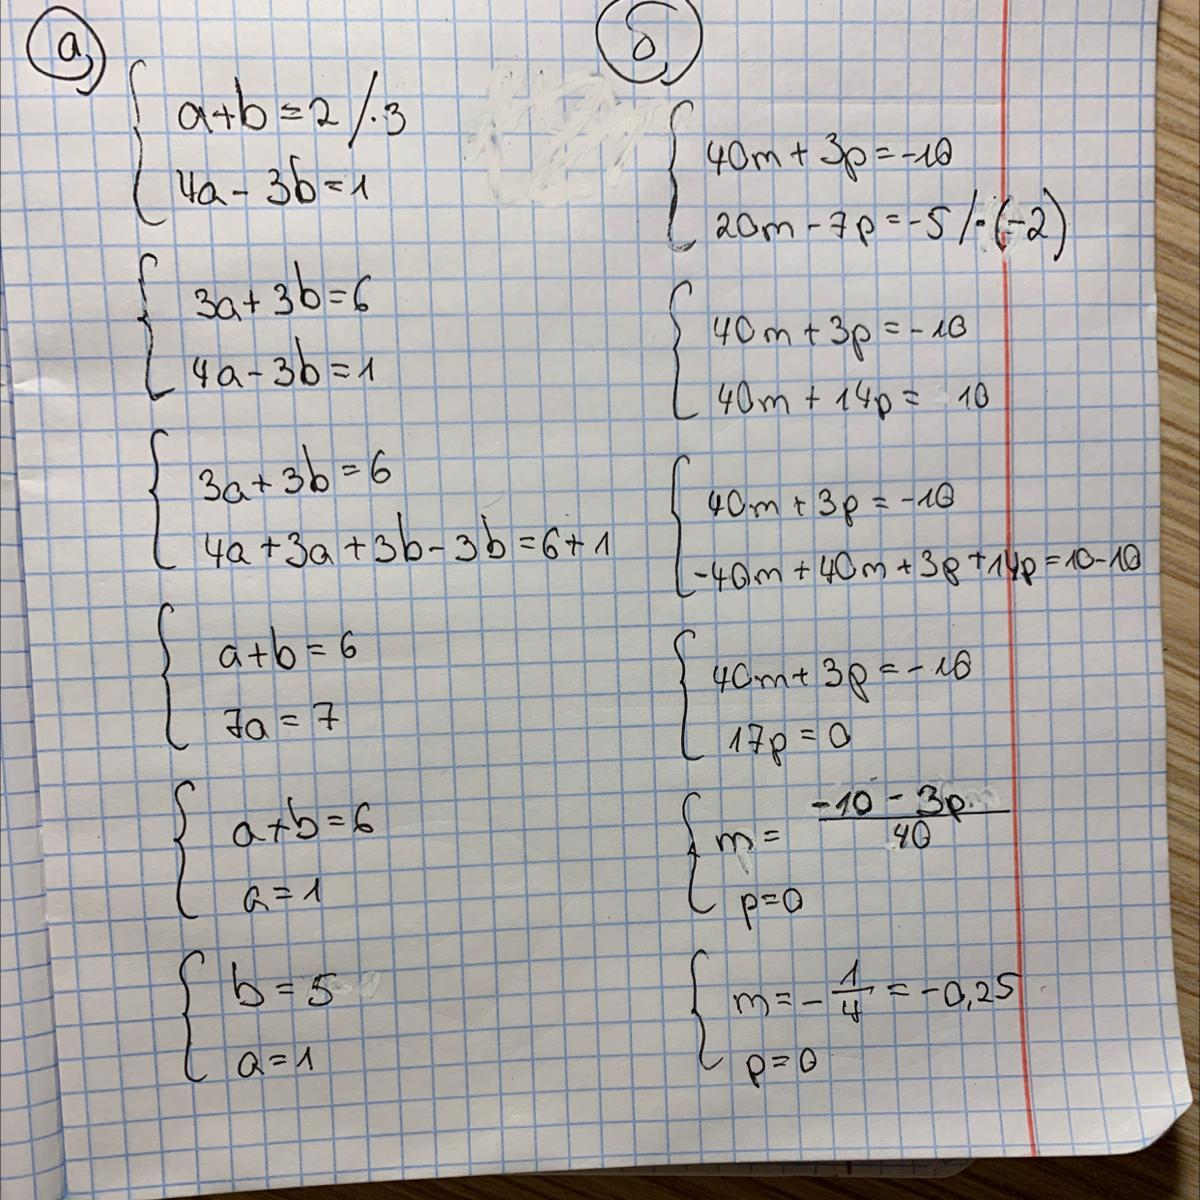 а)
a+b=2/·3
4a-3b=1
3a+3b=6
4a-3b=1
3a+3b=6
4a+3a+3b-3b=6+1
a+b=6
7a=7
a+b=6
a=1
b=5
a=1
б)
40m+3p=-10
20m-7p=-5/·(-2)
40m+3p=-10
40m+14p= 10
40m+3p=-10
-40m+40m+3p+14p=10-10
40m+3p=-10
17p=0
m=
-10-3p
40
p=0
m=-1/4=-0,25
p=0